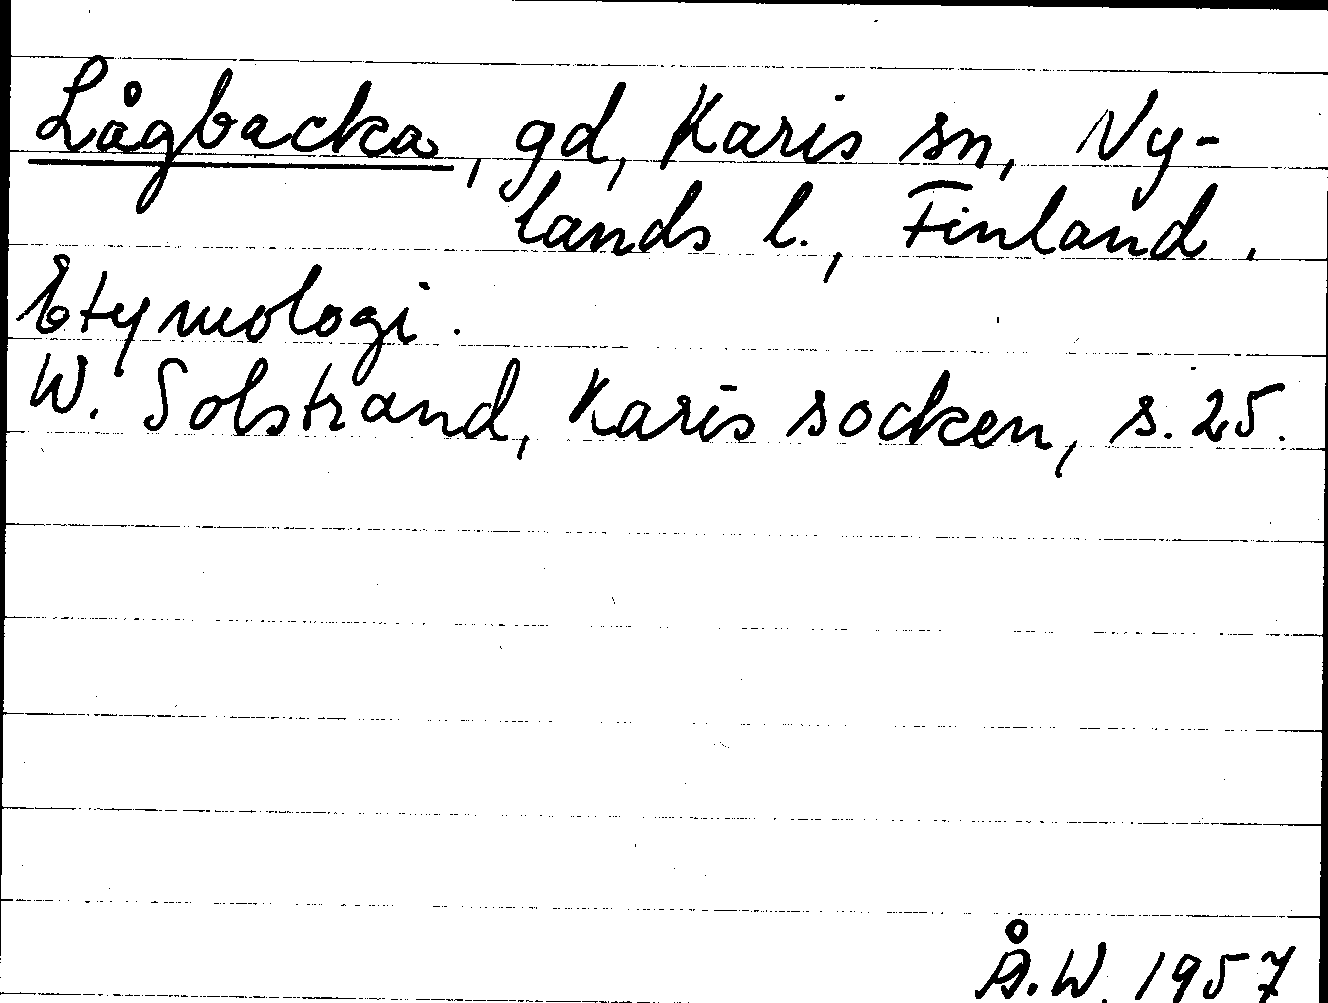 Lågbacka, gd, Karis sn, Ny-
lands l., Finland.
Etymologi.
W. Solstrand, Karis socken, s. 25.
Å.W. 1957